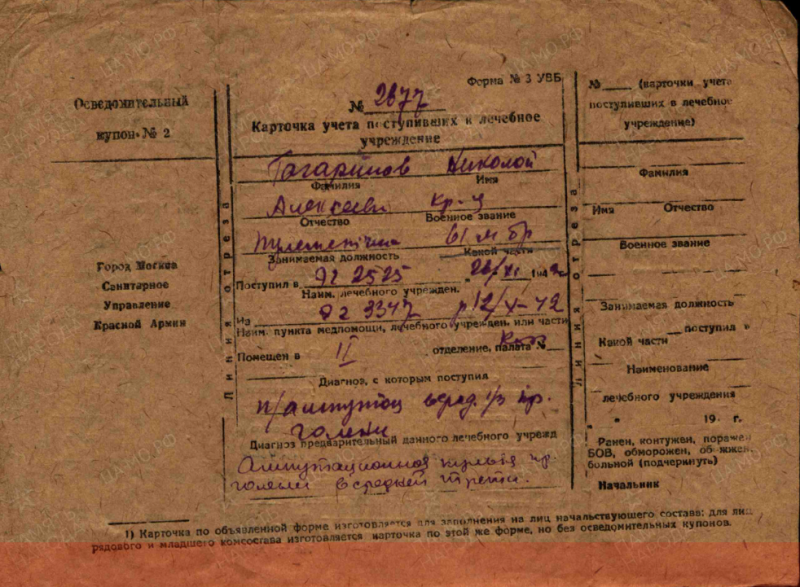 Осведомительный
купон № 2
Город Москва
Санитарное
Управление
Красной Армии
Линия отреза
Форма № 3 УВБ
№ 2677
Карточка учета поступивших в лечебное
учреждение
Гагаринов Николой
Фамилия Имя
Алексееви Кр-ц
Отчество Военное звание
пулеметчик 61 м бр
Занимаемая должность Какой части
Поступил в ЭГ 2525 „26/XI 1942
Наим. лечебного учрежден.
Из ЭГ 3347 р 12/X-42
Наим. пункта медпомощи, лечебного учрежден. или части
Помещен в II отделение, палата №
Диагноз, с которым поступил
п/ампутац в сред. 1/3 пр.
голени
Диагноз предварительный данного лечебного учрежд
Ампутационная культя пр.
голени в средней трети.
Линия отреза
№ (карточки учета
поступивших в лечебное
учреждение)
Фамилия
Имя Отчество
Военное звание
Занимаемая должность
Какой части поступил в
Наименование
лечебного учреждения
" " 19 г.
Ранен, контужен, поражен
БОВ, обморожен, обожжен,
больной (подчеркнуть)
Начальник
1) Карточка по объявленной форме изготовляется для заполнения на лиц начальствующего состава; для лиц
рядового и младшего комсостава изготовляется карточка по этой же форме, но без осведомительных купонов.